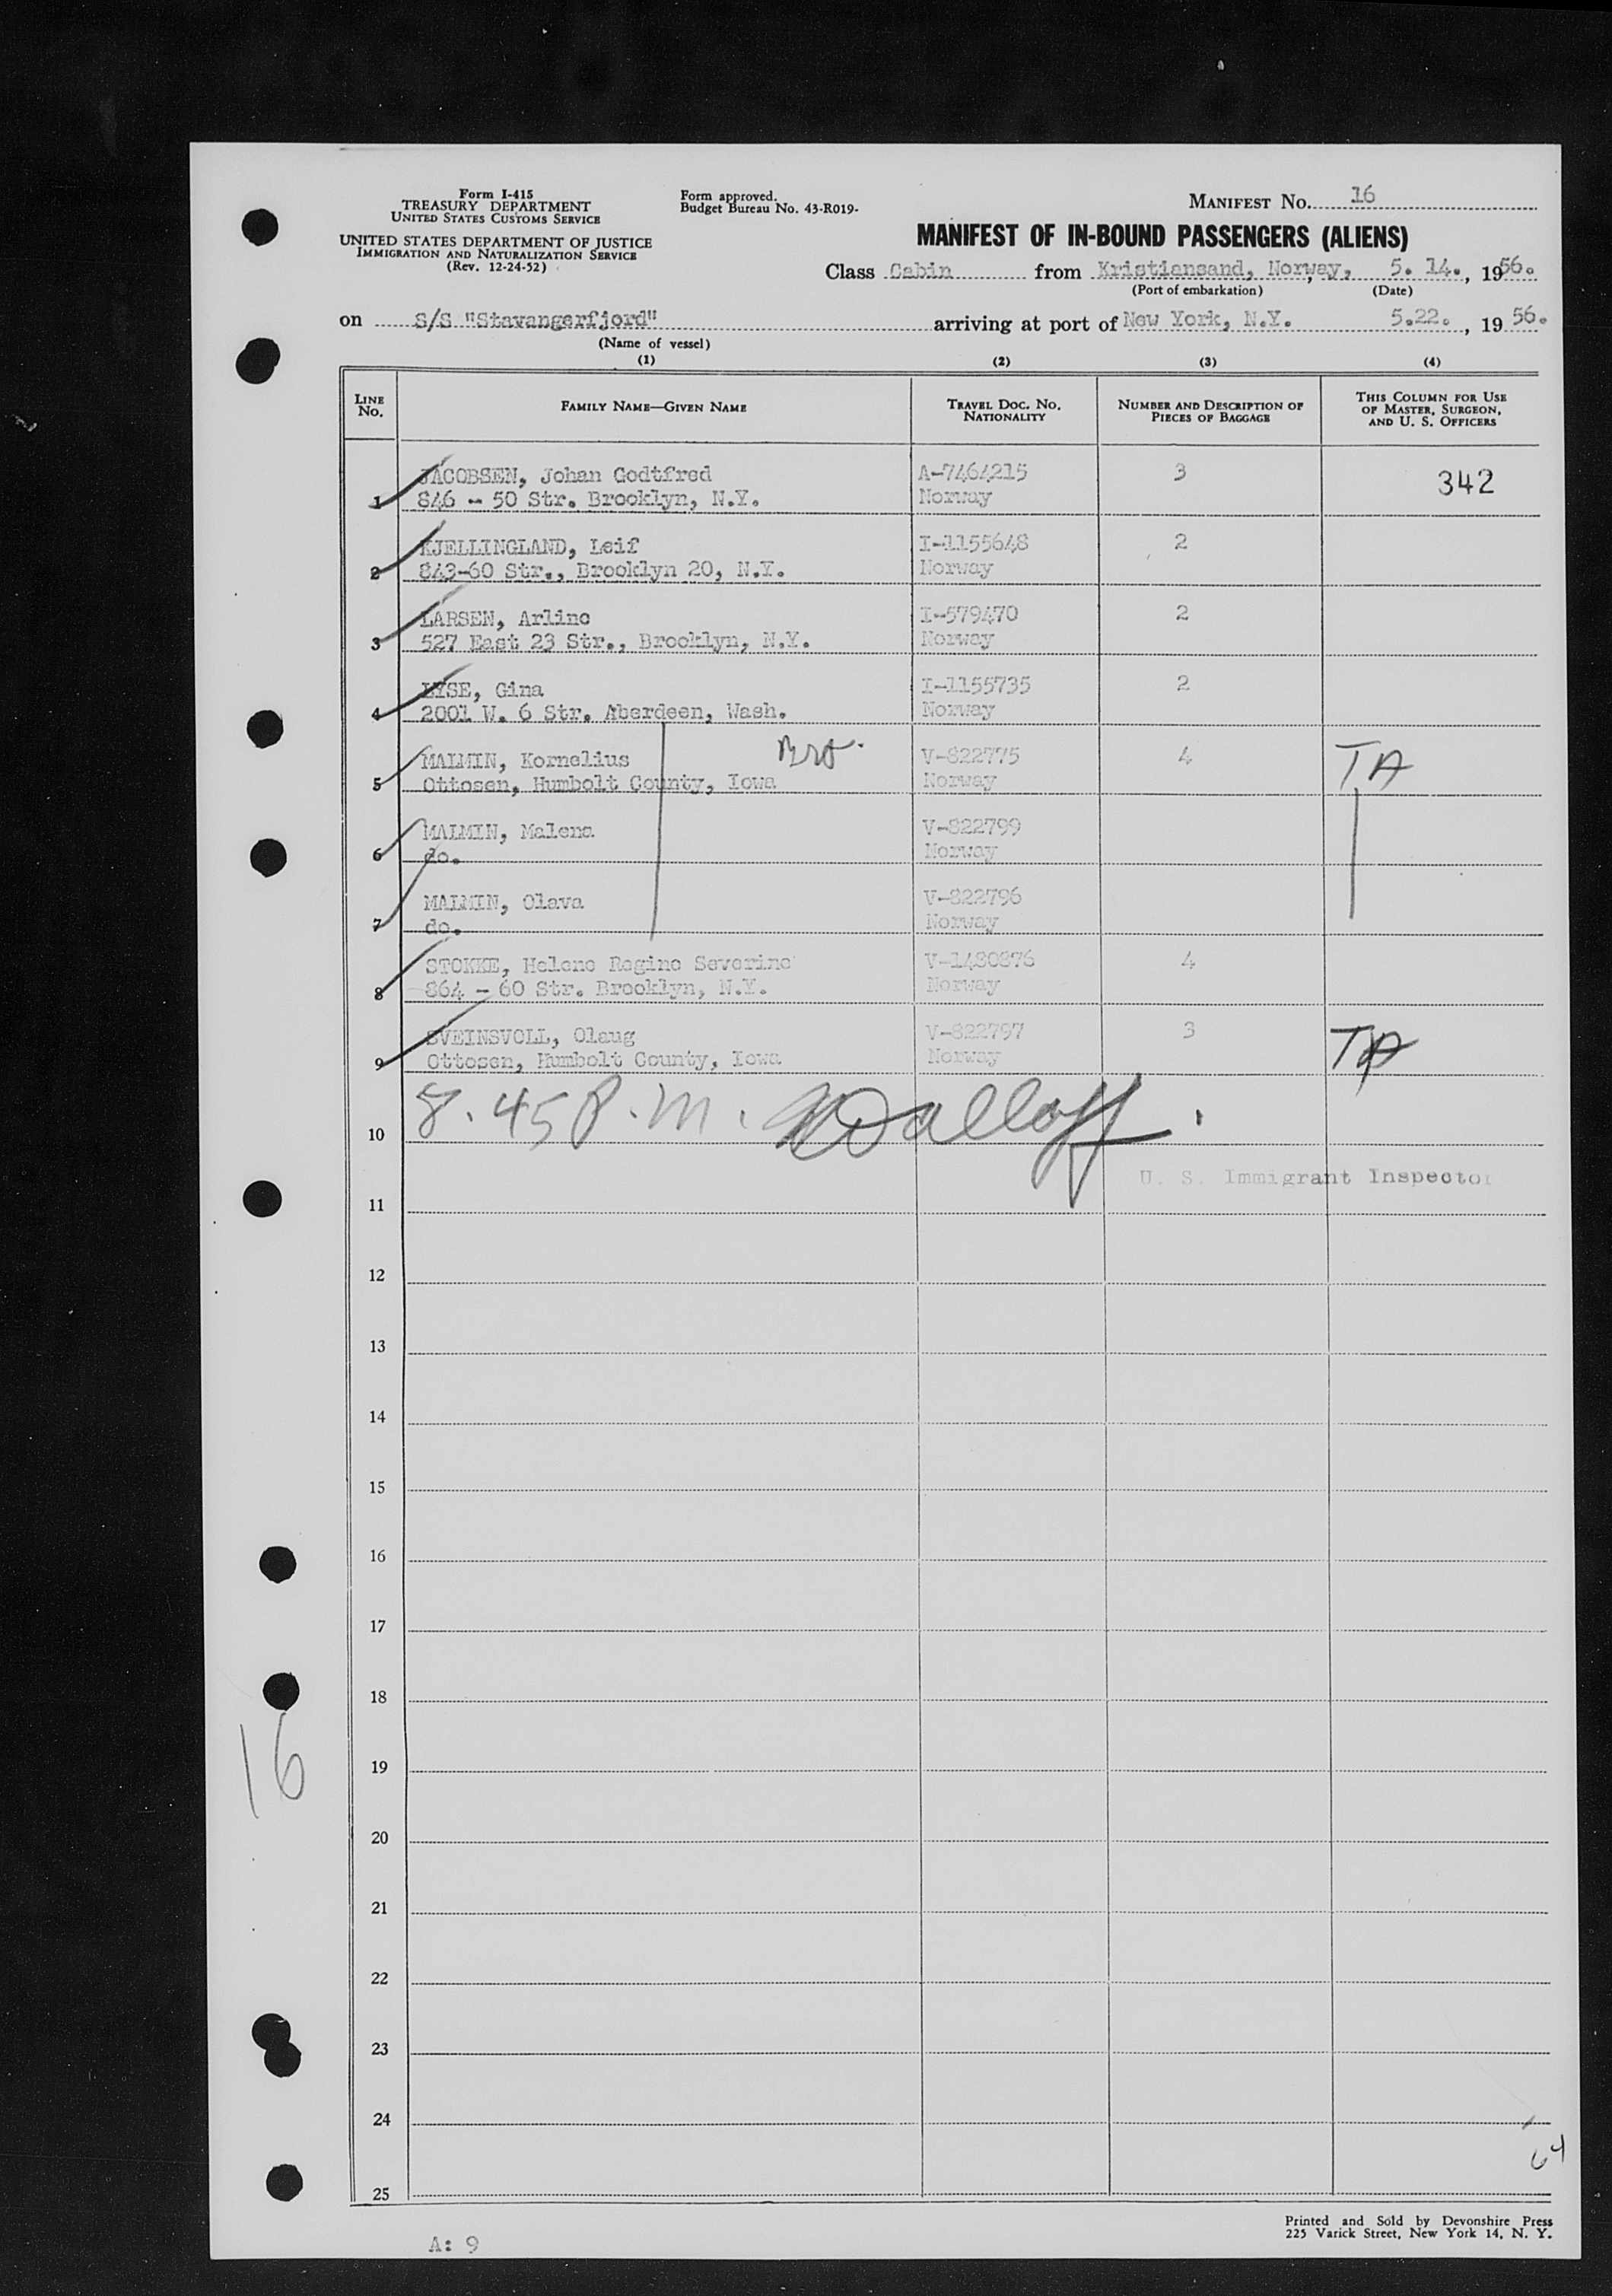 Form I-415
TREASURY DEPARTMENT
UNITED STATES CUSTOMS SERVICE
UNITED STATES DEPARTMENT OF JUSTICE
IMMIGRATION AND NATURALIZATION SERVICE
(Rev. 12-24-52)
Form approved.
Budget Bureau No. 43-R019-
MANIFEST NO. 16
MANIFEST OF IN-BOUND PASSENGERS (ALIENS)
Class Cabin from Kristiansand, Norway, 5. 14., 1956.
(Port of embarkation) (Date)
on S/S "Stavangerfjord" arriving at port of New York, N.Y. 5.22., 1956.
(Name of vessel)
(1) (2) (3) (4)
LINE No. FAMILY NAME—GIVEN NAME TRAVEL DOC. NO. NATIONALITY NUMBER AND DESCRIPTION OF PIECES OF BAGGAGE THIS COLUMN FOR USE OF MASTER, SURGEON, AND U. S. OFFICERS
JACOBSEN, Johan Godtfred A-7464215 3 342
1 846 - 50 Str. Brooklyn, N.Y. Norway
KJELLINGLAND, Leif I-1155648 2
2 843-60 Str., Brooklyn 20, N.Y. Norway
LARSEN, Arline I-579470 2
3 527 East 23 Str., Brooklyn, N.Y. Norway
LYSE, Gina I-1155735 2
4 2001 W. 6 Str. Aberdeen, Wash. Norway
MALMIN, Kornelius V-822775 4 TA
5 Ottosen, Humbolt County, Iowa Norway
MALMIN, Malena V-822799
6 do. Norway
MALMIN, Olava V-822796
7 do. Norway
STOKKE, Helene Regine Severine V-1480876 4
8 864 - 60 Str. Brooklyn, N.Y. Norway
SVEINSVOLL, Olaug V-822797 3 TA
9 Ottosen, Humbolt County, Iowa Norway
8.45 P.M.
10
U. S. Immigrant Inspector
11
12
13
14
15
16
17
16
18
19
20
21
22
23
24
64
25
Printed and Sold by Devonshire Press
225 Varick Street, New York 14, N. Y.
A: 9